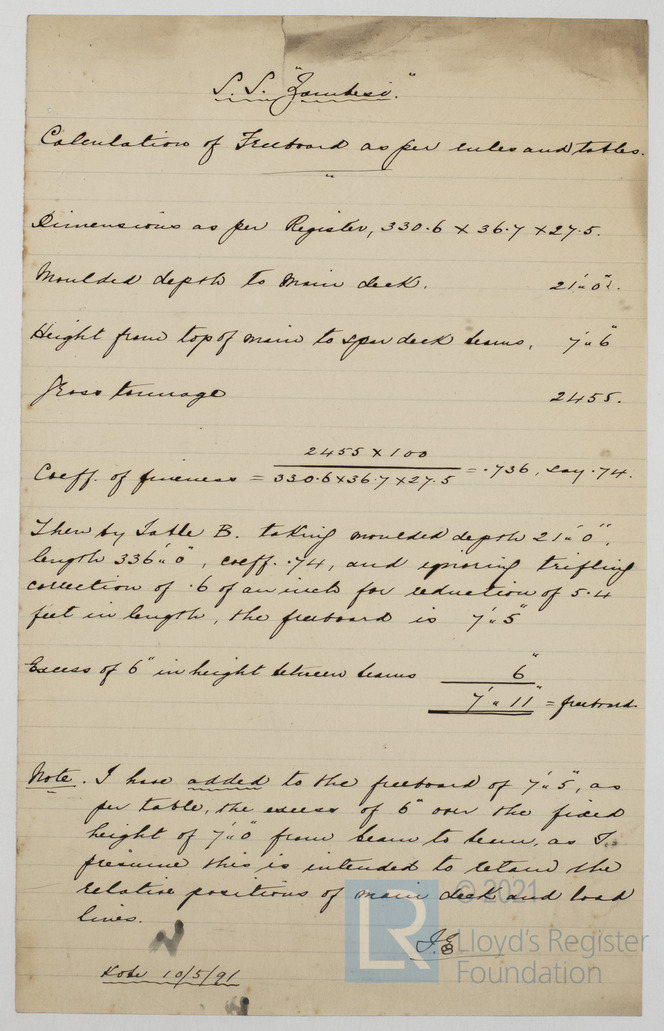 S. S. "Zambesi."
Calculation of Freeboard as per rules and tables.
Dimensions as per Register, 330.6 x 36.7 x 27.5.
Moulded depth to main deck. 21'.. 0".
Height from top of main to spar deck beams, 7'.. 6"
Gross tonnage 2455.
Coeff. of fineness = 2455 x 100 / 330.6 x 36.7 x 27.5 = .736, say .74.
Then by Table B. taking moulded depth 21'.. 0",
length 336'.. 0", coeff. .74, and ignoring trifling
correction of .6 of an inch for reduction of 5.4
feet in length, the freeboard is 7'.. 5"
Excess of 6" in height between beams 6"
7'.. 11" = freeboard
Note. I have added to the freeboard of 7'.. 5", as
per table, the excess of 6" over the fixed
height of 7'.. 0" from beam to beam, as I
presume this is intended to retain the
relative positions of main deck and load
lines.
J.E.
Kobe 10/5/91
© 2021
LR Lloyd's Register
Foundation